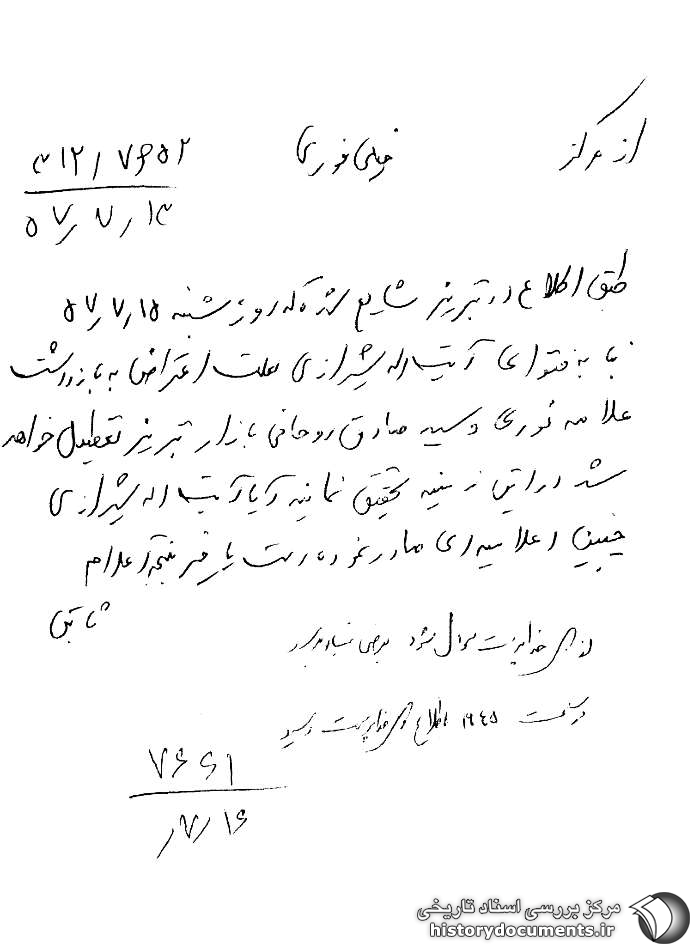 از مرکز
خیلی فوری
۳۱۲/۷۶۵۲
۵۷/۷/۱۳
طبق اطلاع در تبریز شایع شده که روز شنبه ۵۷/۷/۱۵
بنا به فتوای آیت اله شیرازی بعلت اعتراض به بازداشت
علامه نوری و سید صادق روحانی بازار تبریز تعطیل خواهد
شد در این زمینه تحقیق نمائید آیا آیت اله شیرازی
چنین اعلامیه ای صادر نموده است یا خیر نتیجه اعلام
ثابتی
سوال شود
در ساعت ۱۹۴۵ اطلاع رسید
۷۶۶۱
۷/۱۶
مرکز بررسی اسناد تاریخی
historydocuments.ir